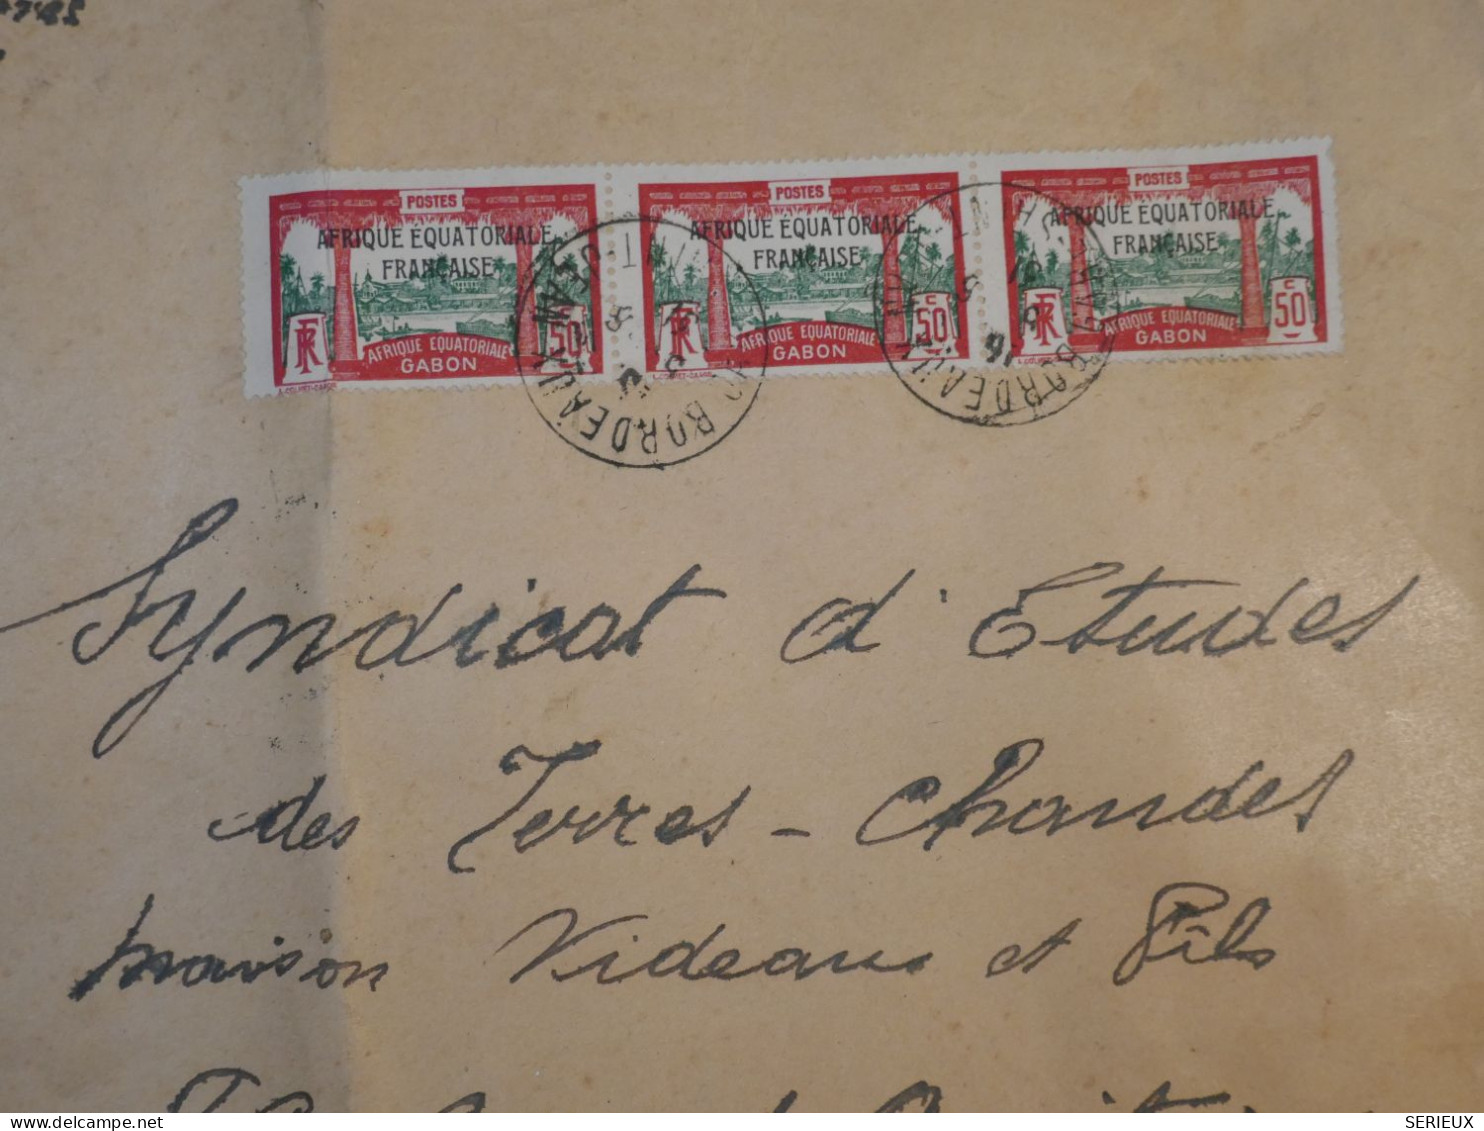 POSTES POSTES POSTES
AFRIQUE ÉQUATORIALE FRANÇAISE
AFRIQUE ÉQUATORIALE FRANÇAISE
AFRIQUE ÉQUATORIALE FRANÇAISE
RF AFRIQUE EQUATORIALE GABON 50
RF AFRIQUE EQUATORIALE GABON 50 c
RF AFRIQUE EQUATORIALE GABON 50 c
BORDEAUX
BORDEAUX
Syndicat d'Etudes
des Terres - Chaudes
maison Videau et Fils
SERIEUX